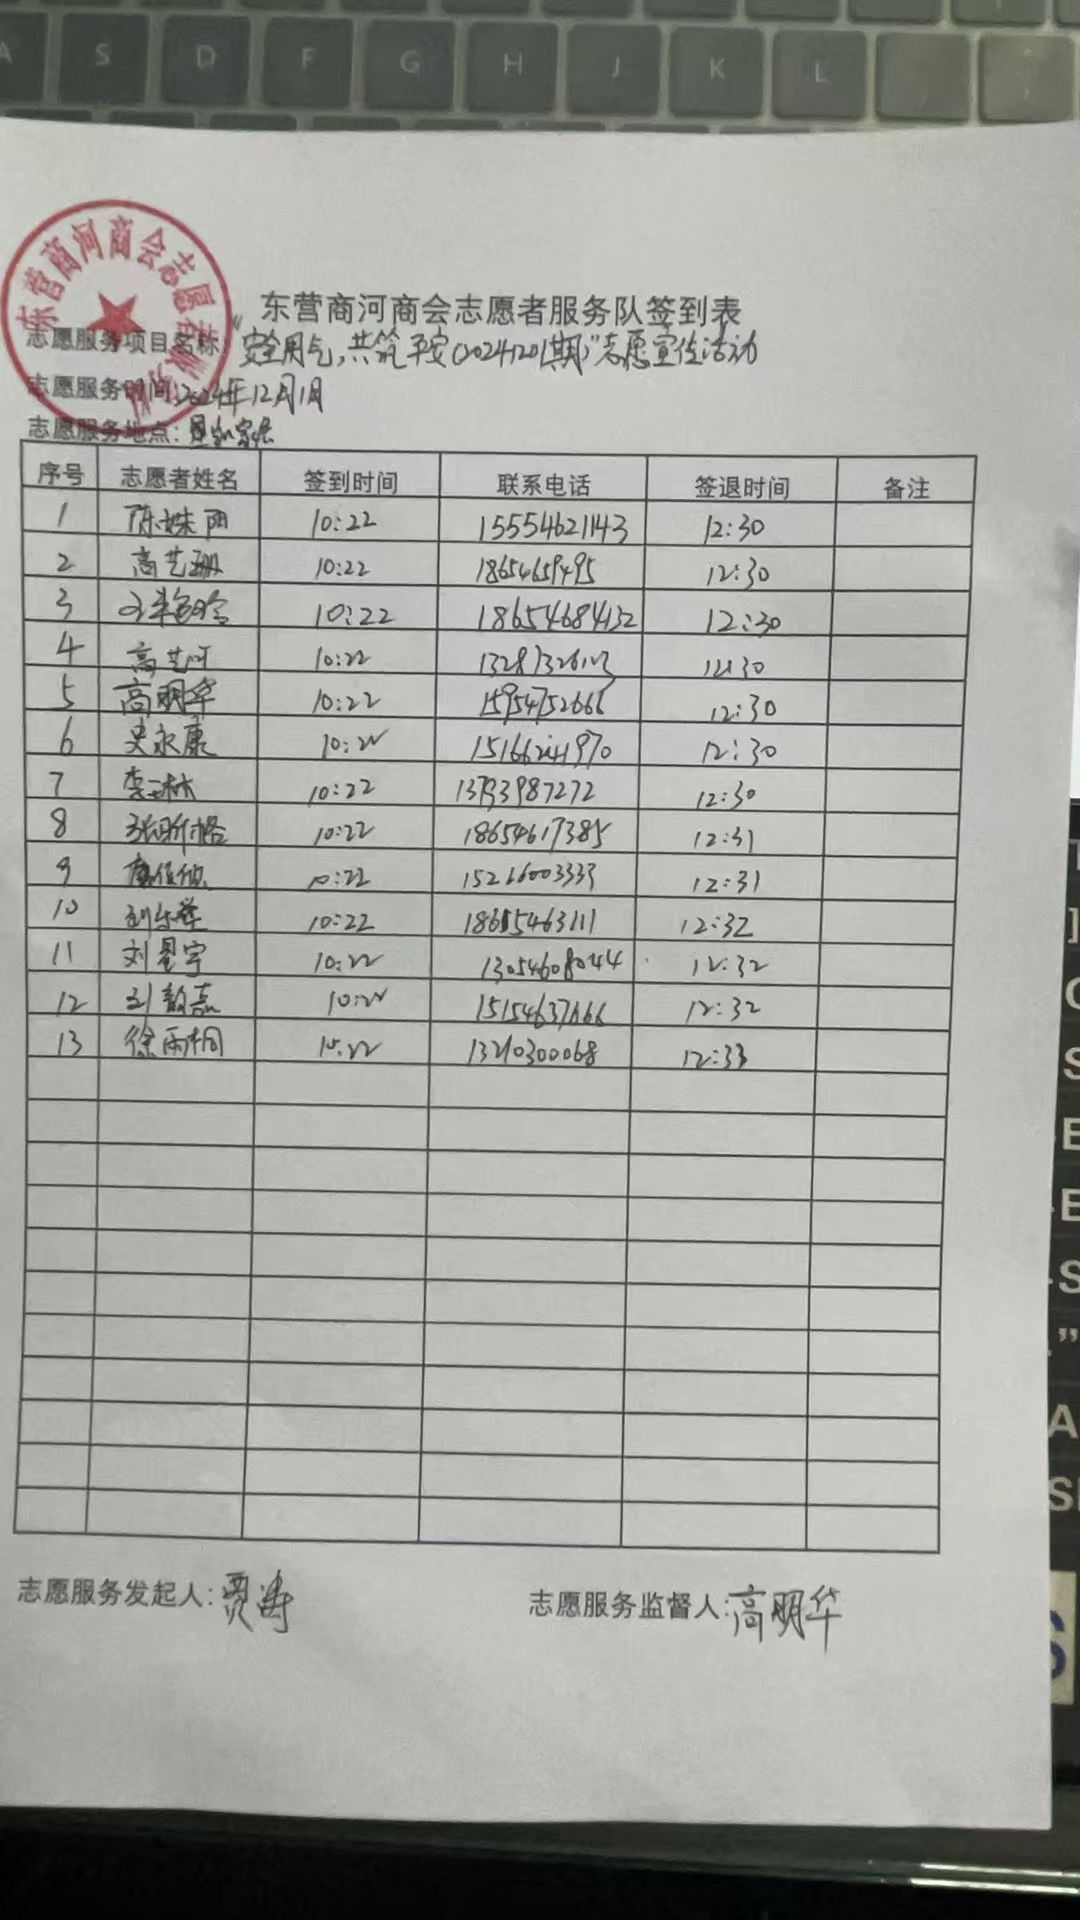 A S D F G H J K L
东营商河商会志愿者服务队
东营商河商会志愿者服务队签到表
志愿服务项目名称:"安全用气,共筑平安(20241201期)"志愿宣传活动
志愿服务时间:2024年12月1日
志愿服务地点:
序号 志愿者姓名 签到时间 联系电话 签退时间 备注
1 陈姝阳 10:22 15554621143 12:30
2 高艺珊 10:22 18654659495 12:30
3 10:22 18654684132 12:30
4 高艺 10:22 12:30
5 高明华 10:22 15954752666 12:30
6 史永康 10:22 15166241970 12:30
7 李 林 10:22 13793987272 12:30
8 张昕格 10:22 18654617385 12:31
9 10:22 15266003333 12:31
10 刘 10:22 12:32
11 刘星宇 10:22 13054608044 12:32
12 刘韵嘉 10:22 15154637666 12:32
13 徐雨桐 10:22 13210300068 12:33
志愿服务发起人:贾涛
志愿服务监督人:高明华